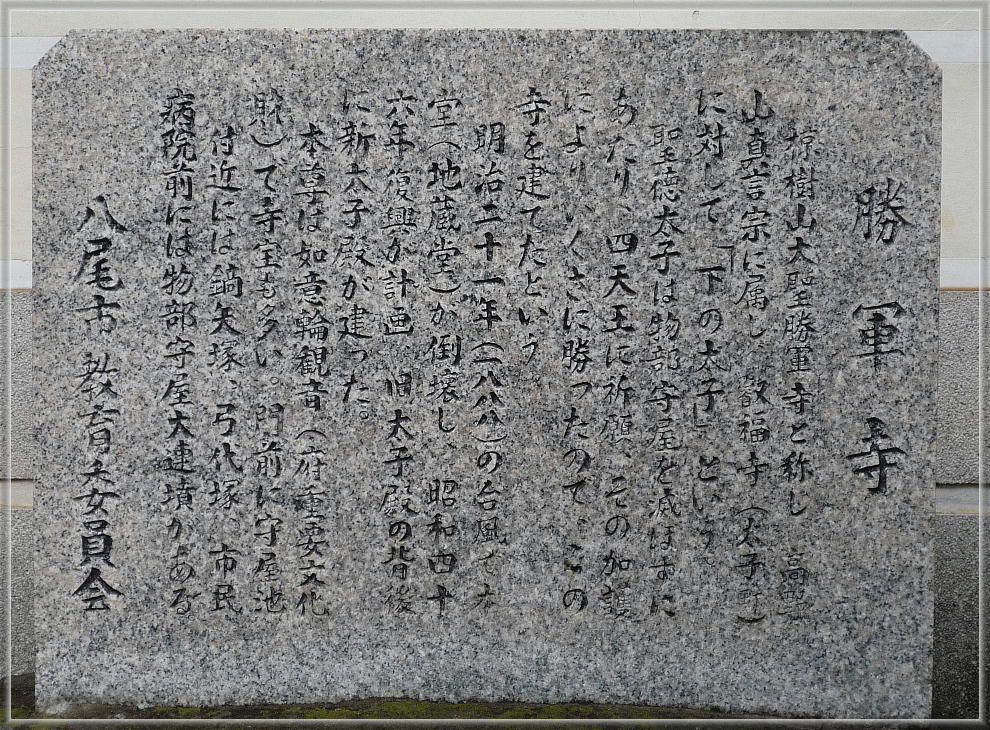 勝軍寺
椋樹山大聖勝軍寺と称し 高野
山真言宗に属し、叡福寺(太子町)
に対して「下の太子」という。
聖徳太子は物部守屋を滅ぼすに
あたり、四天王に祈願、その加護
によりいくさに勝ったので、この
寺を建てたという。
明治二十一年(一八八八)の台風で本
堂(地蔵堂)が倒壊し、昭和四十
六年復興が計画 旧太子殿の背後
に新太子殿が建った。
本尊は如意輪観音(府重要文化
財)で寺宝も多い。門前に守屋池
付近には鏑矢塚、弓代塚、市民
病院前には物部守屋大連墳がある
八尾市教育委員会